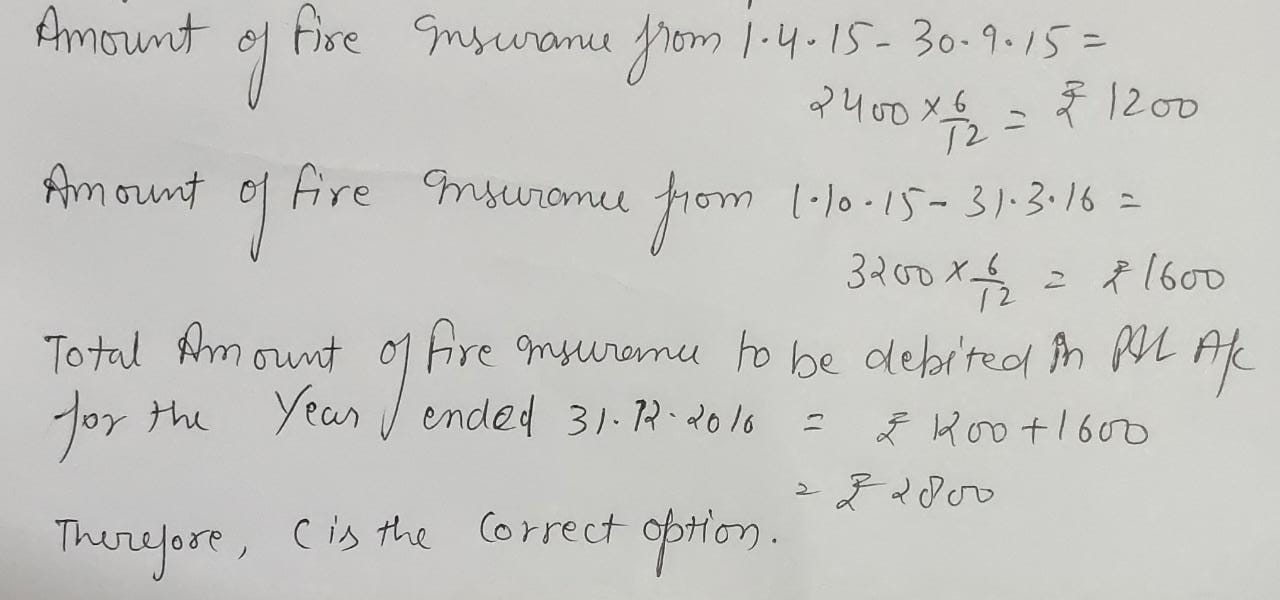 Amount of fire Insurance from 1.4.15 - 30.9.15 =
2400 × 6/12 = ₹ 1200
Amount of fire Insurance from 1.10.15 - 31.3.16 =
3200 × 6/12 = ₹ 1600
Total Amount of fire insurance to be debited in P&L A/c
for the Year ended 31.12.2016 = ₹ 1200 + 1600
= ₹ 2800
Therefore, C is the correct option.